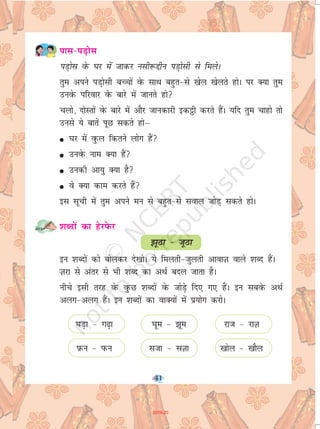 पास-पड़ोस
पड़ोस के घर में जाकर नसीरूद्दीन पड़ोसी से मिले।
तुम अपने पड़ोसी बच्चों के साथ बहुत-से खेल खेलते हो। पर क्या तुम
उनके परिवार के बारे में जानते हो?
चलो, दोस्तों के बारे में और जानकारी इकट्ठी करते हैं। यदि तुम चाहो तो
उनसे ये बातें पूछ सकते हो–
● घर में कुल कितने लोग हैं?
● उनके नाम क्या हैं?
● उनकी आयु क्या है?
● वे क्या काम करते हैं?
इस सूची में तुम अपने मन से बहुत-से सवाल जोड़ सकते हो।
शब्दों का हेरफेर
झूठा - जूठा
इन शब्दों को बोलकर देखो। ये मिलती-जुलती आवाज़ वाले शब्द हैं।
ज़रा से अंतर से भी शब्द का अर्थ बदल जाता है।
नीचे इसी तरह के कुछ शब्दों के जोड़े दिए गए हैं। इन सबके अर्थ
अलग-अलग हैं। इन शब्दों का वाक्यों में प्रयोग करो।
घड़ा - गढ़ा
घूम - झूम
राज - राज़
फ़न - फन
सजा - सज़ा
खोल - खौल
© NCERT
not to be republished
41